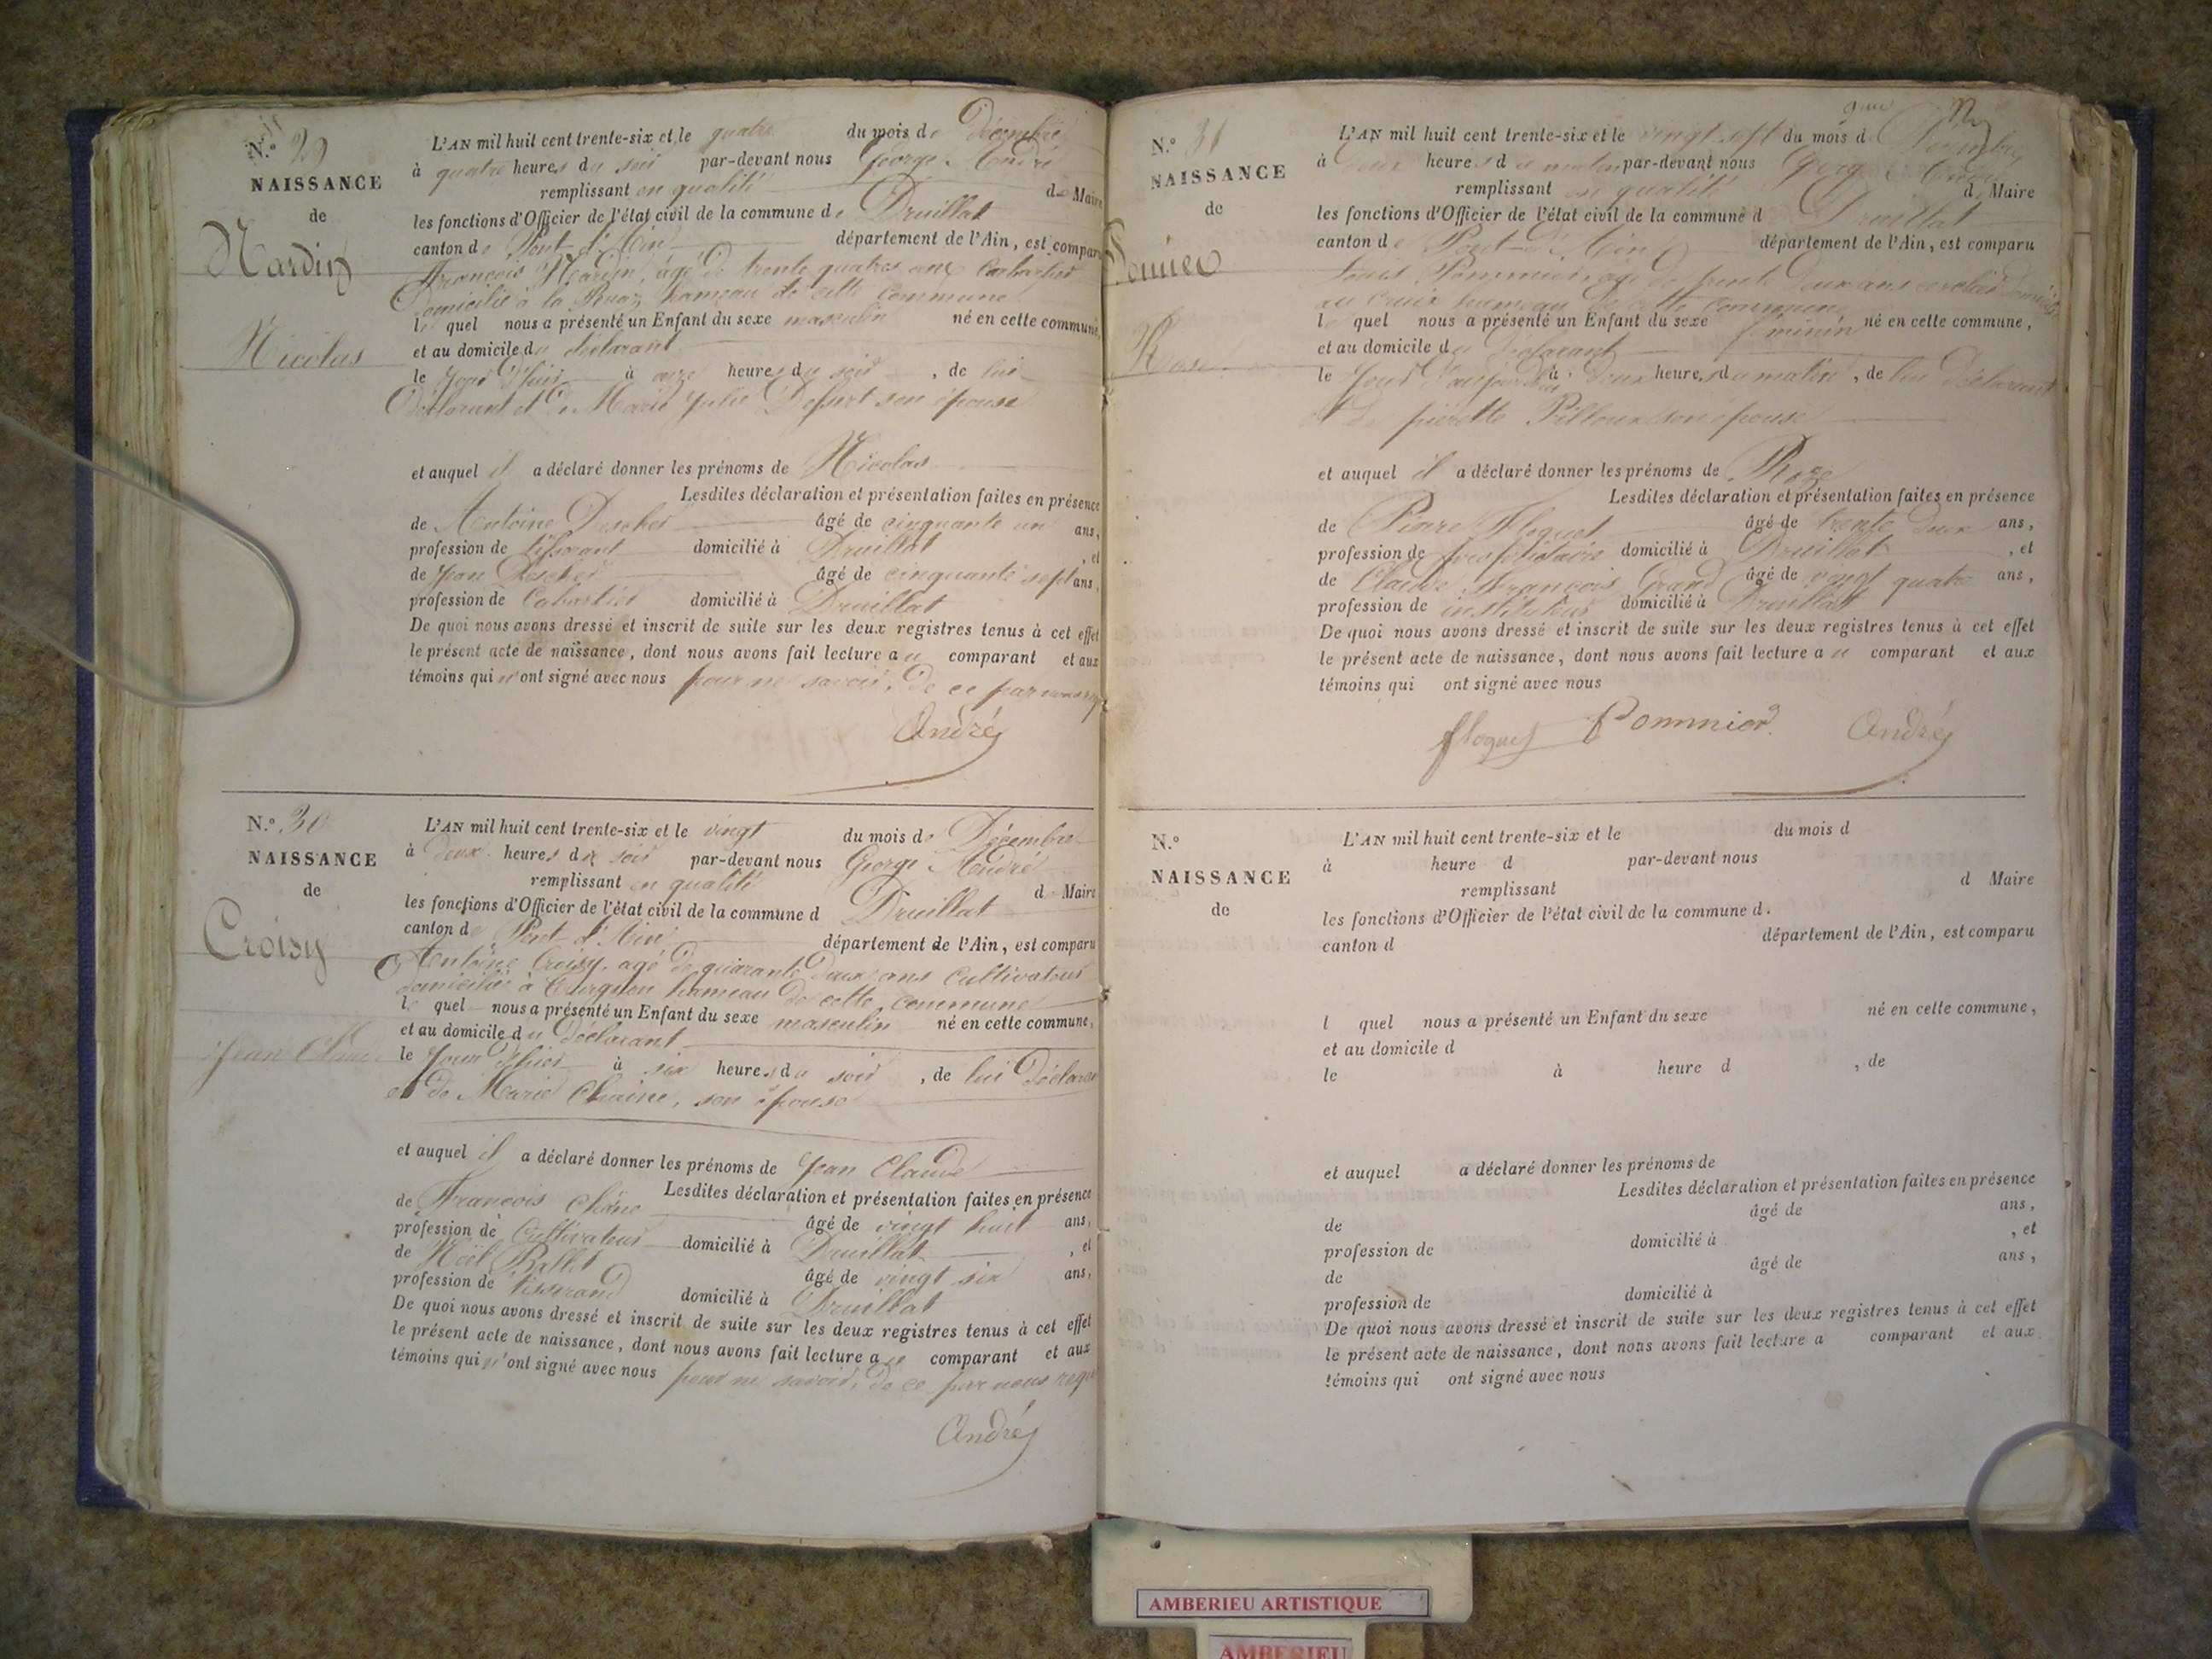 N.º 29
NAISSANCE
de
Nardin
Nicolas
L'AN mil huit cent trente-six et le quatre du mois de Décembre
à quatre heures du soir par-devant nous George André
remplissant en qualité de Maire
les fonctions d'Officier de l'état civil de la commune de Druillat
canton de Pont d'Ain département de l'Ain, est comparu
François Nardin, âgé de trente quatre ans
Domicilié à la Ruaz hameau de cette commune
le quel nous a présenté un Enfant du sexe masculin né en cette commune,
et au domicile du déclarant
le jour d'hier à onze heures du soir, de lui
Déclarant et de Marie Julie son épouse
et auquel il a déclaré donner les prénoms de Nicolas
Lesdites déclaration et présentation faites en présence
de Antoine âgé de cinquante un ans,
profession de tisserant domicilié à Druillat, et
de Jean âgé de cinquante sept ans,
profession de domicilié à Druillat
De quoi nous avons dressé et inscrit de suite sur les deux registres tenus à cet effet
le présent acte de naissance, dont nous avons fait lecture au comparant et aux
témoins qui n'ont signé avec nous pour ne savoir, de ce par nous
André
N.º 30
NAISSANCE
de
Croisy
Jean Claude
L'AN mil huit cent trente-six et le vingt du mois de Décembre
à deux heures du soir par-devant nous George André
remplissant en qualité de Maire
les fonctions d'Officier de l'état civil de la commune d Druillat
canton de Pont d'Ain département de l'Ain, est comparu
Antoine Croisy, agé de quarante deux ans cultivateur
domicilié à hameau de cette commune
le quel nous a présenté un Enfant du sexe masculin né en cette commune,
et au domicile du Déclarant
le jour d'hier à six heures du soir, de lui Déclarant
et de Marie Chaine, son épouse
et auquel il a déclaré donner les prénoms de Jean Claude
Lesdites déclaration et présentation faites en présence
de François Chêne âgé de vingt huit ans,
profession de Cultivateur domicilié à Druillat, et
de Noël Ballet âgé de vingt six ans,
profession de tisserand domicilié à Druillat
De quoi nous avons dressé et inscrit de suite sur les deux registres tenus à cet effet
le présent acte de naissance, dont nous avons fait lecture au comparant et aux
témoins qui n'ont signé avec nous pour ne savoir, de ce par nous requis
André
N.º 31
NAISSANCE
de
L'AN mil huit cent trente-six et le vingt sept du mois de Décembre
à deux heures du matin par-devant nous George André
remplissant en qualité de Maire
les fonctions d'Officier de l'état civil de la commune d Druillat
canton de Pont d'Ain département de l'Ain, est comparu
Louis Pommier, agé de trente deux ans
au hameau de cette commune
le quel nous a présenté un Enfant du sexe féminin né en cette commune,
et au domicile du Déclarant
le jour d'aujourd'hui à deux heures du matin, de lui Déclarant
et de pierrette Pilloux son épouse
et auquel il a déclaré donner les prénoms de Roze
Lesdites déclaration et présentation faites en présence
de Pierre Floquet âgé de trente deux ans,
profession de propriétaire domicilié à Druillat, et
de Claude François Grand âgé de vingt quatre ans,
profession de instituteur domicilié à Druillat
De quoi nous avons dressé et inscrit de suite sur les deux registres tenus à cet effet
le présent acte de naissance, dont nous avons fait lecture au comparant et aux
témoins qui ont signé avec nous
floquet Pommier André
N.º
NAISSANCE
de
L'AN mil huit cent trente-six et le du mois d
à heure d par-devant nous
remplissant d Maire
les fonctions d'Officier de l'état civil de la commune d.
canton d département de l'Ain, est comparu
l quel nous a présenté un Enfant du sexe né en cette commune,
et au domicile d
le à heure d , de
et auquel a déclaré donner les prénoms de
Lesdites déclaration et présentation faites en présence
de âgé de ans,
profession de domicilié à , et
de âgé de ans,
profession de domicilié à
De quoi nous avons dressé et inscrit de suite sur les deux registres tenus à cet effet
le présent acte de naissance, dont nous avons fait lecture a comparant et aux
témoins qui ont signé avec nous
AMBERIEU ARTISTIQUE
AMBERIEU